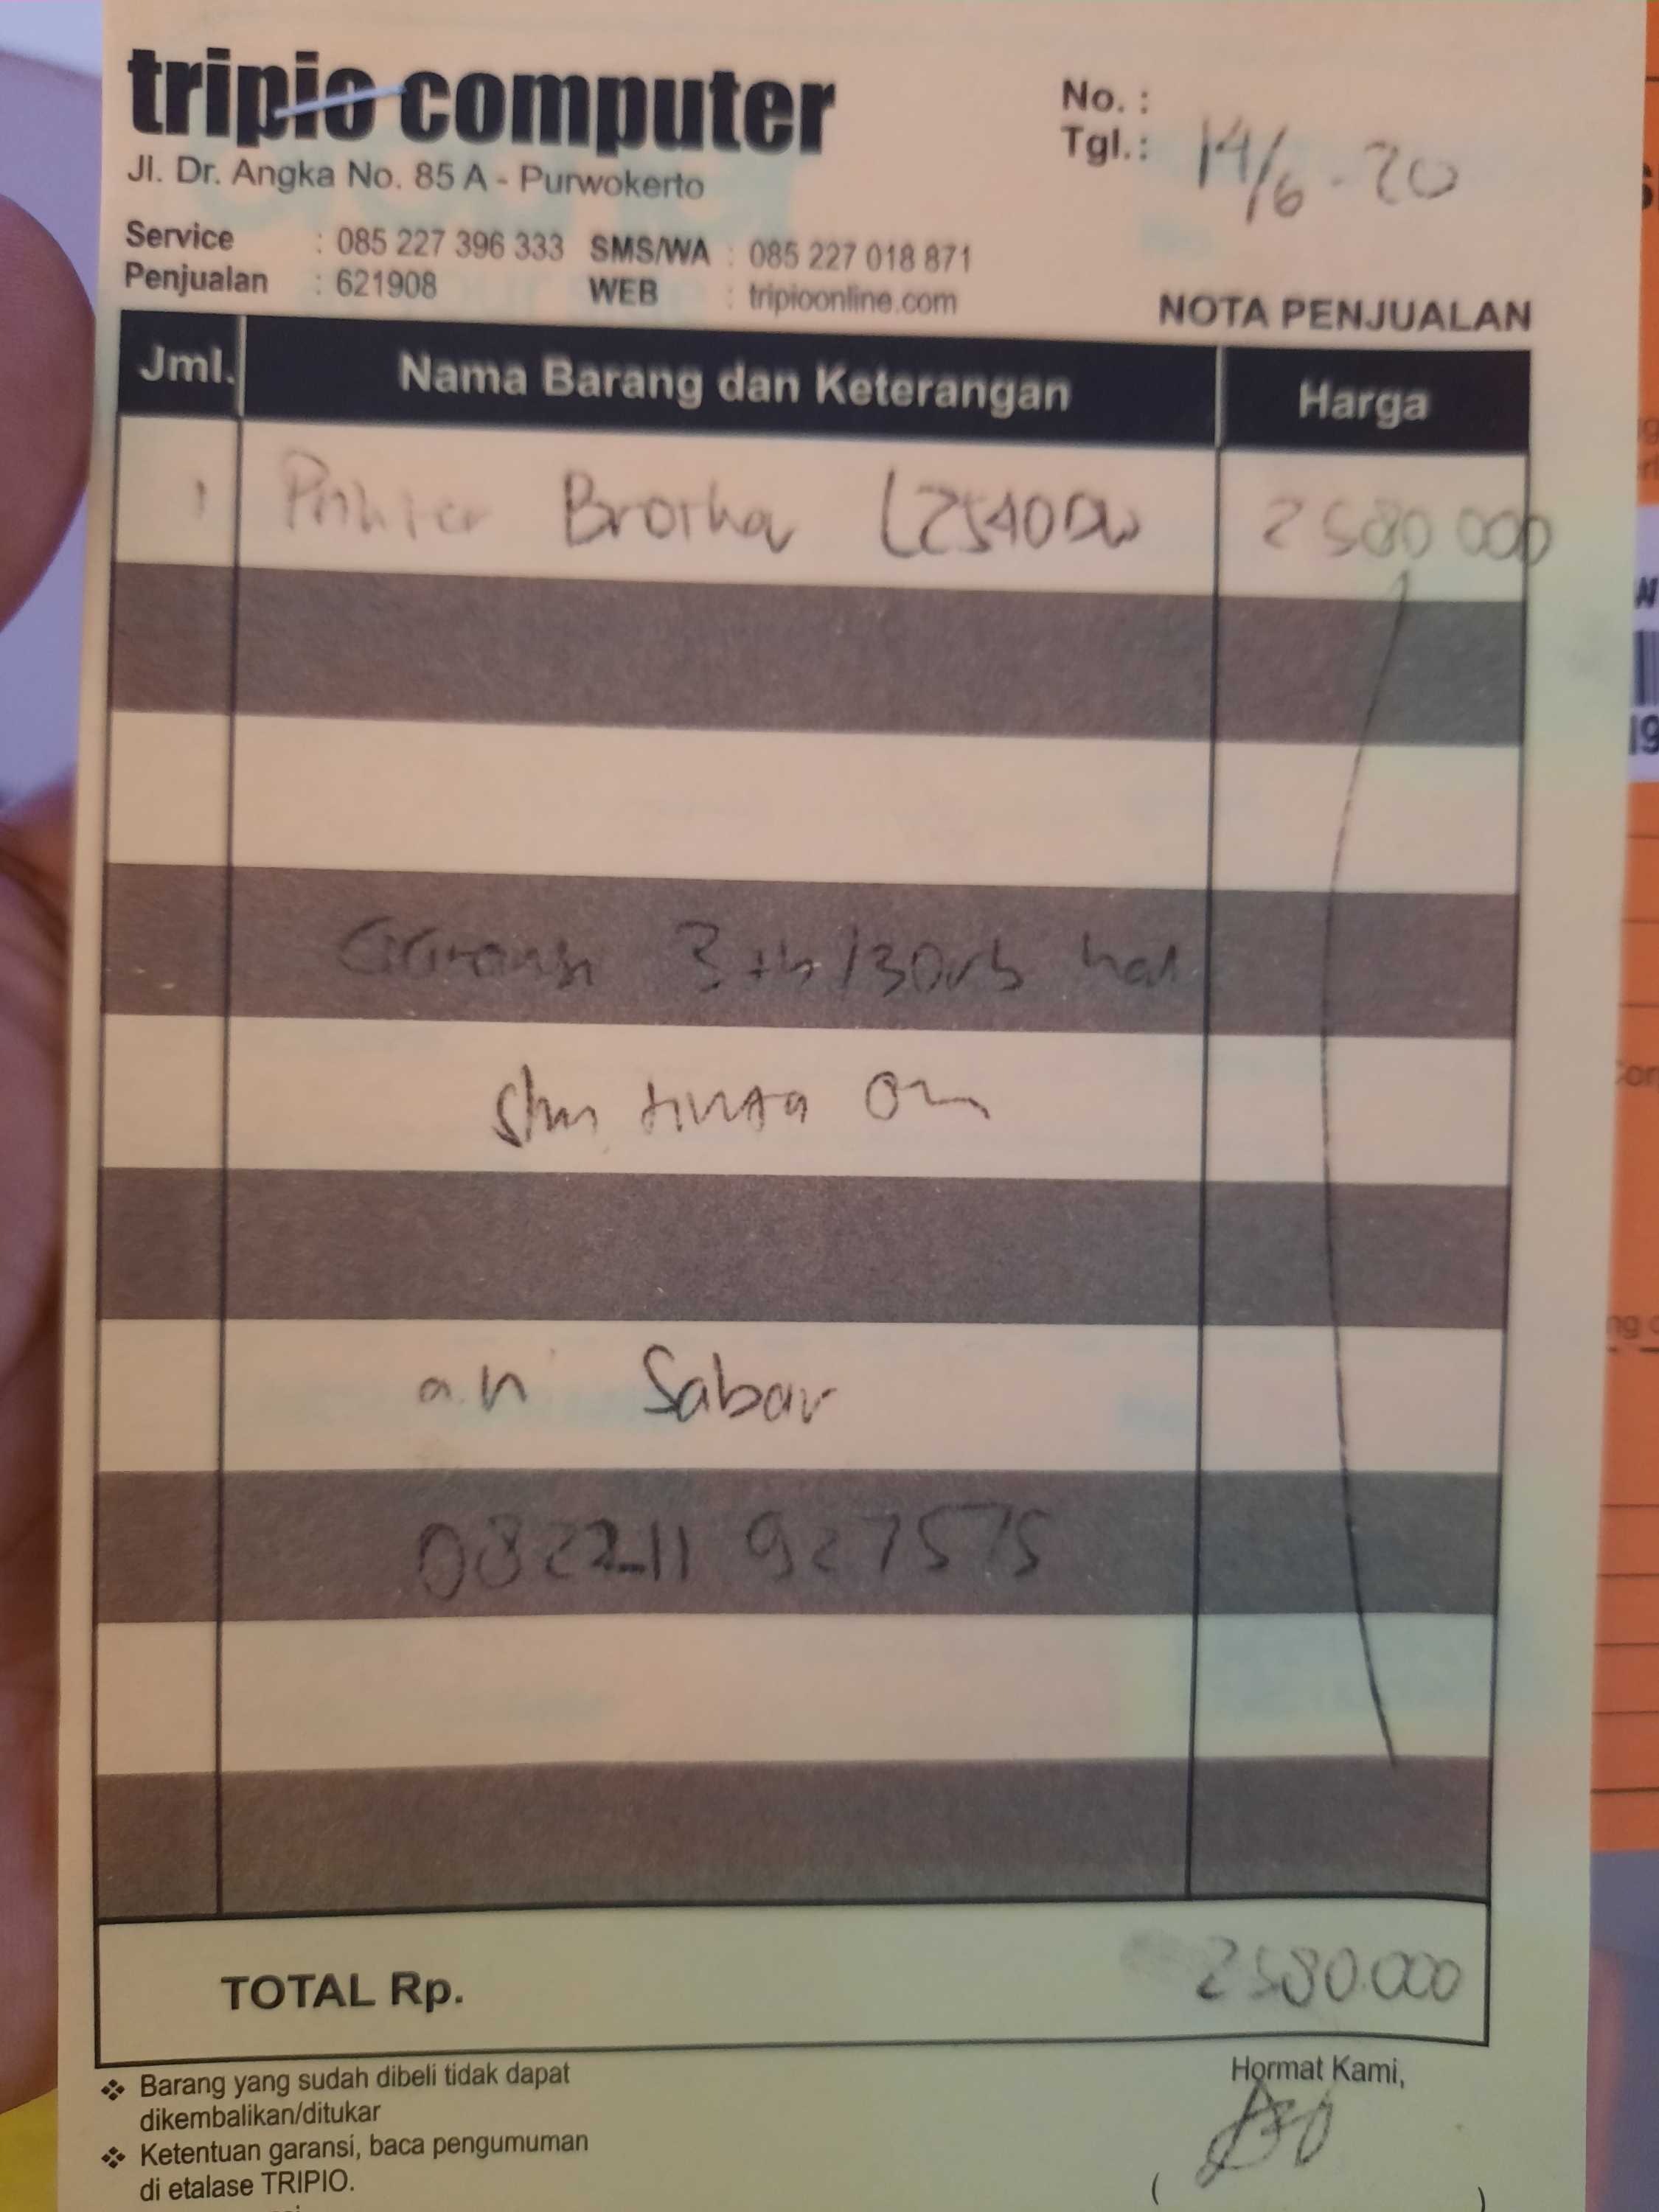 tripio computer
Jl. Dr. Angka No. 85 A - Purwokerto
Service : 085 227 396 333 SMS/WA : 085 227 018 871
Penjualan : 621908 WEB : tripioonline.com
No. :
Tgl. : 14/6 - 20
NOTA PENJUALAN
Jml. Nama Barang dan Keterangan Harga
1 Printer Brother L2540DW 2580 000
Garansi 3 th/30rb hal
tinta
a.n Sabar
082211 927575
TOTAL Rp. 2580.000
❖ Barang yang sudah dibeli tidak dapat
dikembalikan/ditukar
❖ Ketentuan garansi, baca pengumuman
di etalase TRIPIO.
Hormat Kami,
( )